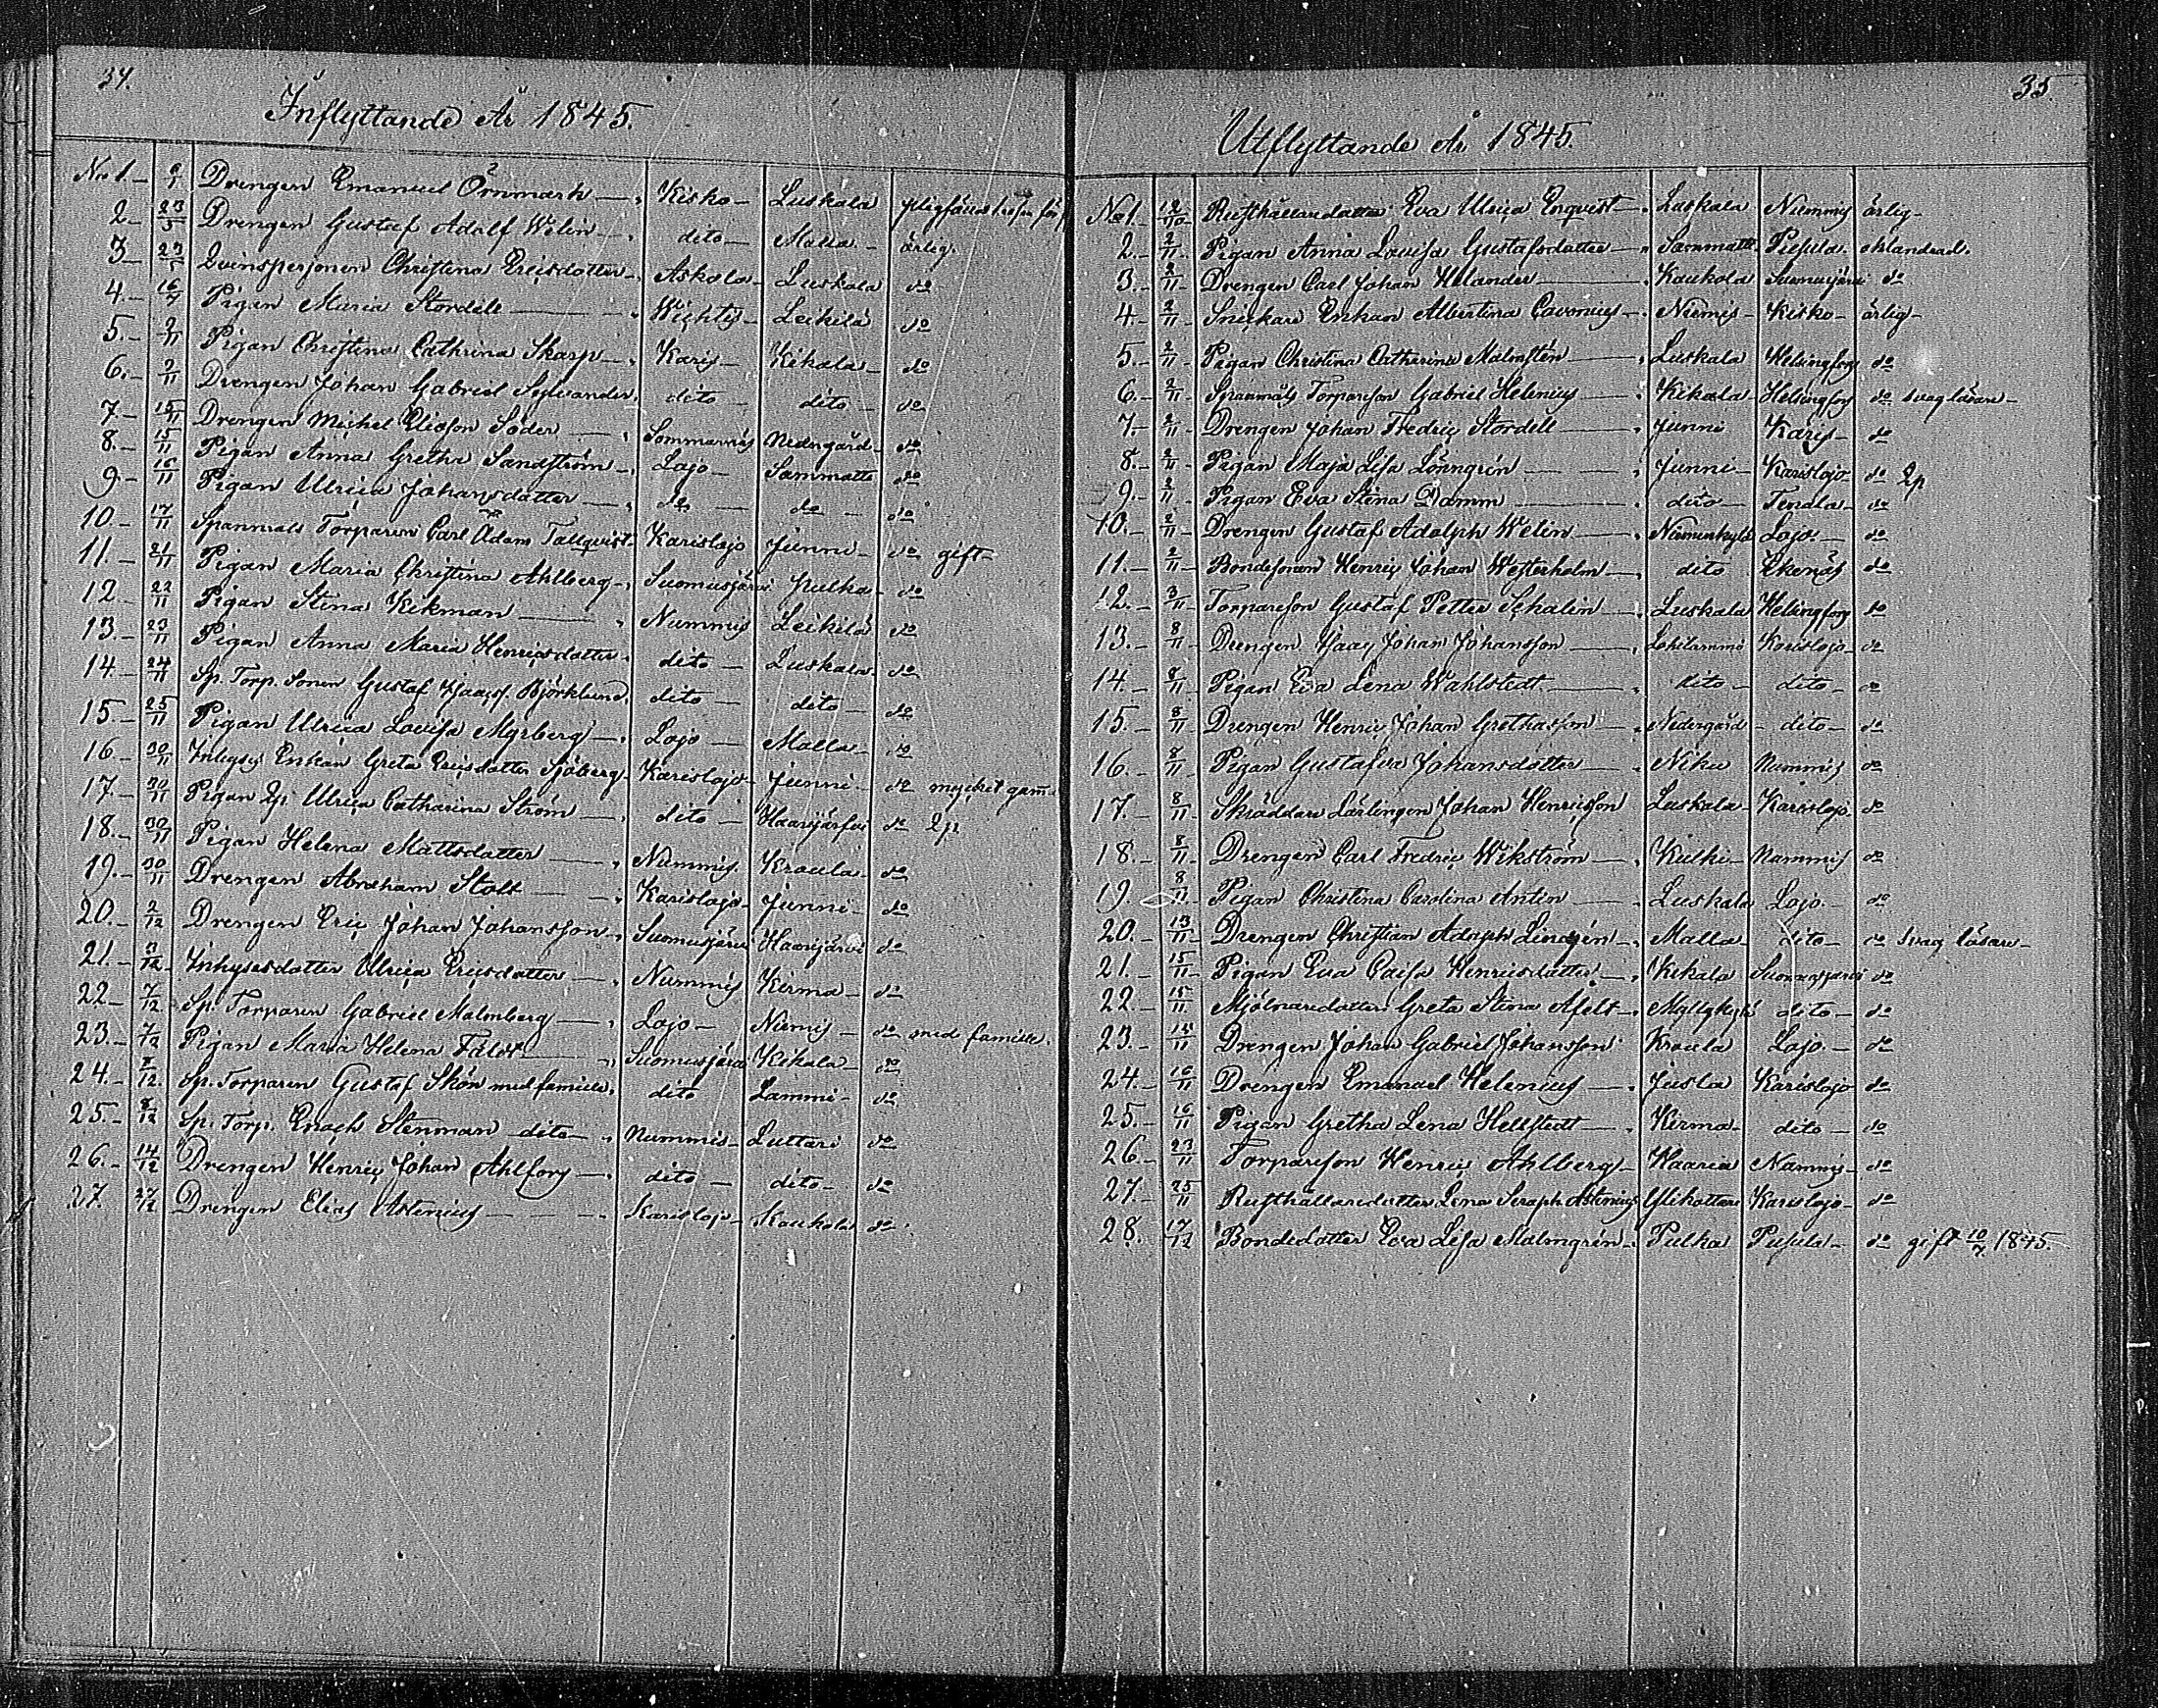 34.
Inflyttande År 1845.
No 1. Drengen Emanuel Örnmark Kisko Luskala
2 23/5 Drengen Gustaf Adolf Welin dito Malla ärlig.
3 Qvinspersonen Christina Ericsdotter Askola Luskala do
4. 16/7 Pigan Maria Stordell Wichtis Leikilä do
5. 2/11 Pigan Christina Cathrina Skarp Karis Kikala do
6. 2/11 Drengen Johan Gabriel Sylvander dito dito do
7 15/11 Drengen Michel Söder Sommarnäs Nedergård do
8. 15/11 Pigan Anna Gretha Sandström Lojo Sammatti do
9. 16/11 Pigan Ulrica Johansdotter do do do
10. 17/11 Spanmåls Torparen Carl Adam Tallqvist Karislojo Junni do gift
11. 21/11 Pigan Maria Christina Ahlberg Suomusjärvi Pulka do
12. 22/11 Pigan Stina Ekman Nummis Leikilä do
13. 23/11 Pigan Anna Maria Henricsdotter dito Luskala do
14. 24/11 Sp. Torp. Sonen Gustaf Isacss. Björklund dito dito do
15. 25/11 Pigan Ulrica Lovisa Myrberg Lojo Malla do
16 30/11 Inhyses Enkan Greta Ericsdotter Sjöberg Karislojo Junni do mycket gam
17. 30/11 Pigan Ulrica Catharina Ström dito Haarjärfvi do 2p
18. 30/11 Pigan Helena Mattsdotter Nummis Kraula do
19. 30/11 Drengen Abraham Stolt Karislojo Junni do
20. 2/12 Drengen Eric Johan Johansson Suomusjärvi Haarijärvi do
21. 3/12 Inhysesdotter Ulrica Ericsdotter Nummis Kirma do
22 7/12 Sp. Torparen Gabriel Malmberg Lojo Niemis do med familie.
23. 7/12 Pigan Maria Helena Fält Suomusjärvi Kikala do
24. 8/12 Sp. Torparen Gustaf Skön med familie dito Lammi do
25. 8/12 Sp. Torp. Enoch Stenman dito Nummis Luttari do
26. 14/12 Drengen Henric Johan Ahlfors dito dito do
27. 27/12 Drengen Elias Astenius Karislojo Kaukola do
35.
Utflyttande År 1845.
No 1. 12/10 Rusthållaredotter Eva Ulrica Enqvist Luskala Nummis ärlig
2. 2/11 Pigan Anna Lovisa Gustafsdotter Sammatti Pusula klandrad.
3. 2/11 Drengen Carl Johan Helander Kaukola Suomusjärvi do
4. 2/11 Snickare Enkan Albertina Cavonius Niemis Kisko ärlig
5. 2/11 Pigan Christina Catharina Malmstén Luskala Helsingfors do
6. 2/11 Spanmåls Torpareson Gabriel Helenius Kikala Helsingfors do svag läsare
7. 2/11 Drengen Johan Fredric Stordell Junni Karis do
8. 2/11 Pigan Maja Lisa Lönngrén Junni Karislojo do 2p
9. 2/11 Pigan Eva Stina Damm dito Tenala do
10. 2/11 Drengen Gustaf Adolph Welin Niemenkylä Lojo. do
11. 2/11 Bondesonen Henric Johan Westerholm dito Ekenäs do
12. 3/11 Torpareson Gustaf Petter Schalin Luskala Helsingfors do
13. 8/11 Drengen Isaac Johan Johansson Lohilammi Karislojo do
14. 8/11 Pigan Eva Lena Wahlstedt dito dito do
15. 8/11 Drengen Henric Johan Grethasson Nedergård dito do
16. 8/11 Pigan Gustafva Johansdotter Niku Nummis do
17. 8/11 Skräddare Lärlingen Johan Henricsson Luskala Karislojo do
18. 8/11 Drengen Carl Fredric Wikström Kulki Nummis do
19. 8/11 Pigan Christina Carolina Antin Luskala Lojo. do
20. 13/11 Drengen Christian Adolph Lindgén Malla dito do svag läsare
21. 15/11 Pigan Eva Caisa Henricsdotter Kikala Suomusjärvi do
22. 15/11 Mjölnaredotter Greta Stina Afelt Myllykylä dito do
23. 15/11 Drengen Johan Gabriel Johansson Kraula Lojo. do
24. 16/11 Drengen Emanuel Helenius Jusla Karislojo do
25. 16/11 Pigan Gretha Lena Hellstedt Kirma dito do
26. 23/11 Torpareson Henric Ahlberg Haaria Nummis do
27. 25/11 Rusthållaredotter Lena Seraph. Astenius Ylikottari Karislojo do
28. 17/12 Bondedotter Eva Lisa Malmgrén Pulka Pusula do gift 10/7 1845.